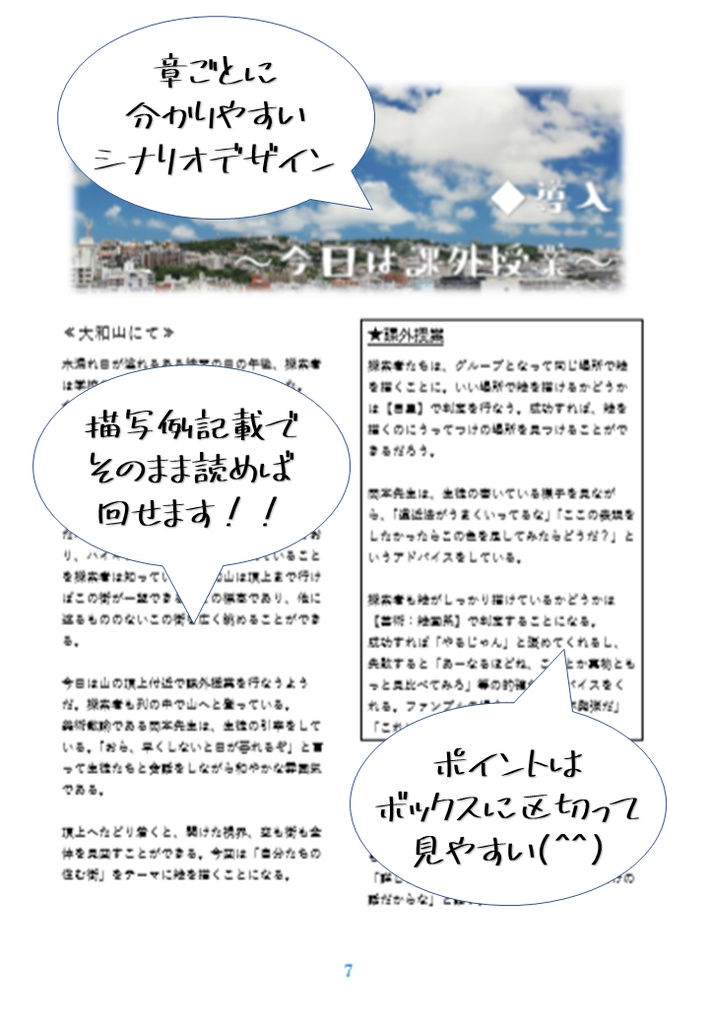 章ごとに
分かりやすい
シナリオデザイン
◆導入
～今日は課外授業～
≪大和山にて≫
木漏れ日が溢れるある
の日の午後、探索者
は学校
描写例記載で
そのまま読めば
回せます！！
り、ハイ
ていること
を探索者は知ってい
山は頂上まで行け
ばこの街が一望できる
の標高であり、他に
遮るもののないこの街
広く眺めることができ
る。
今日は山の頂上付近で課外授業を行なうよう
だ。探索者も列の中で山へと登っている。
美術教諭である岡本先生は、生徒の引率をして
いる。「おら、早くしないと日が暮れるぞ」と言
って生徒たちと会話をしながら和やかな雰囲気
である。
頂上へたどり着くと、開けた視界、空も街も全
体を見回すことができる。今回は「自分たちの
住む街」をテーマに絵を描くことになる。
★課外授業
探索者たちは、グループとなって同じ場所で絵
を描くことに。いい場所で絵を描けるかどうか
は【目星】で判定を行なう。成功すれば、絵を
描くのにうってつけの場所を見つけることがで
きるだろう。
岡本先生は、生徒の書いている様子を見なが
ら、「遠近法がうまくいってるな」「ここの表現を
したかったらこの色を足してみたらどうだ？」と
いうアドバイスをしている。
探索者も絵がしっかり描けているかどうかは
【芸術：絵画系】で判定することになる。
成功すれば「やるじゃん」と褒めてくれるし、
失敗すると「あーなるほどね、こ
とか実物とも
っと見比べてみろ」等の的確
バイスをく
れる。ファンブル
「これ
ポイントは
ボックスに区切って
見やすい(^^)
話だからな」と
7